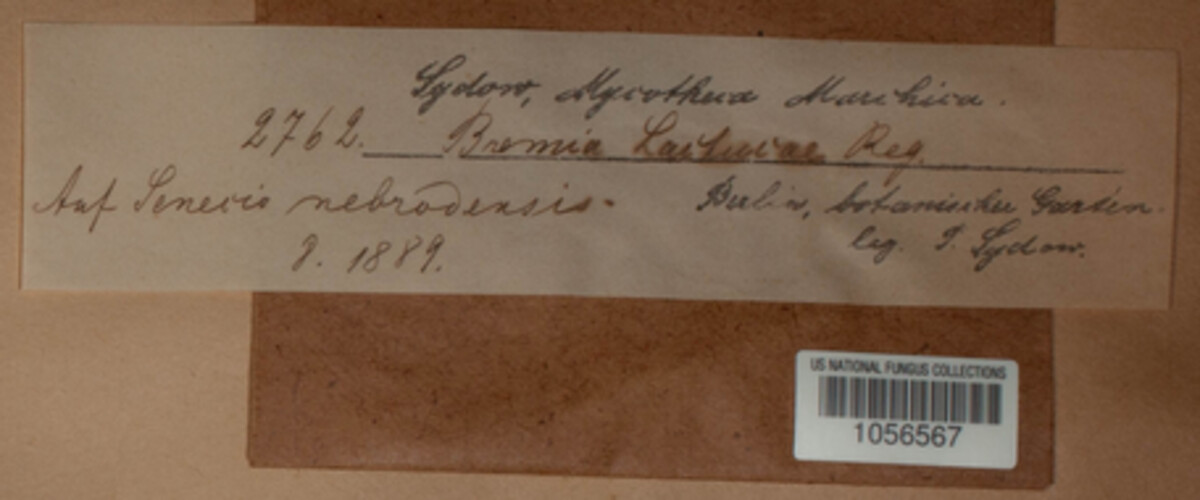 Sydow, Mycotheca Marchica.
2762. Bremia Lactucae Reg.
Auf Senecio nebrodensis.
8. 1889.
Berlin, botanischer Garten.
leg. P. Sydow.
US NATIONAL FUNGUS COLLECTIONS
1056567